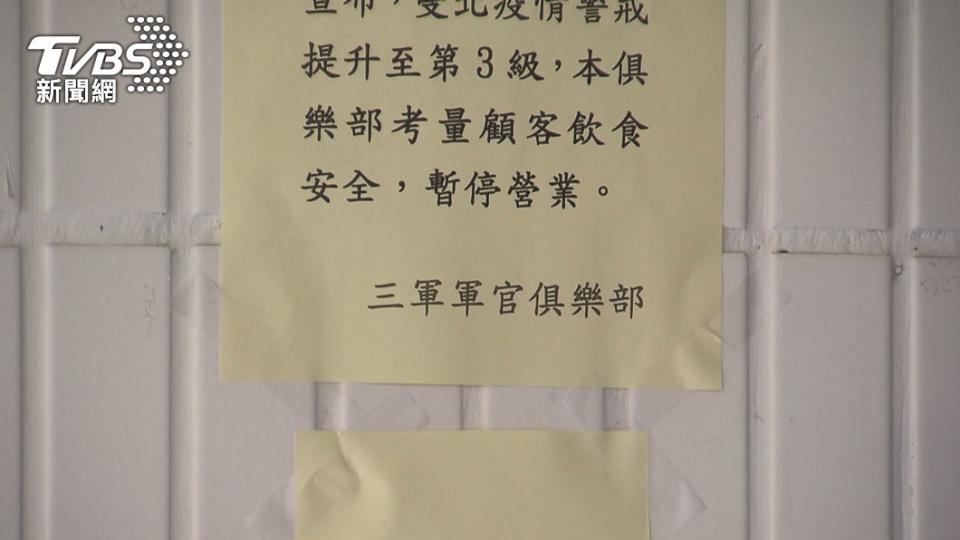 TVBS
新聞網
宣布，雙北疫情警戒
提升至第3級，本俱
樂部考量顧客飲食
安全，暫停營業。
三軍軍官俱樂部